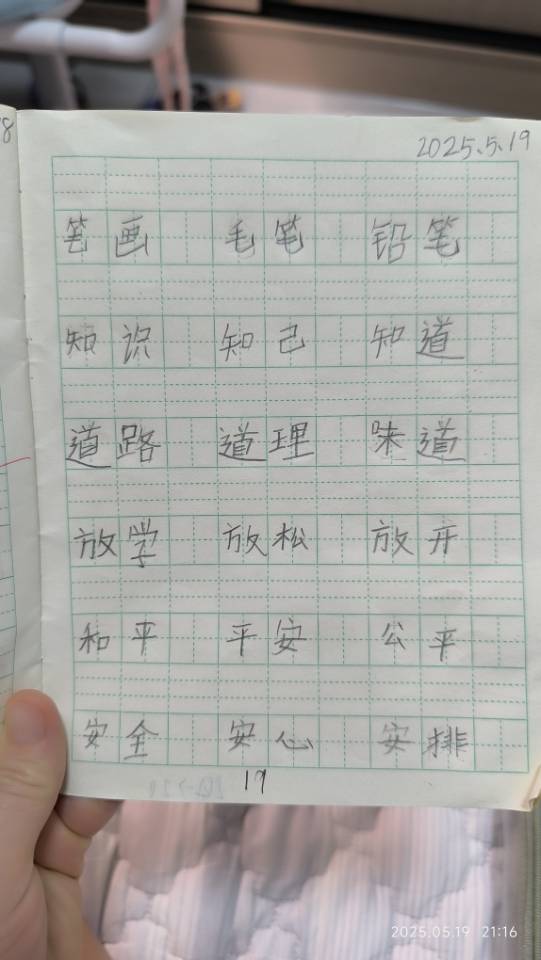 8
2025.5.19
笔画 毛笔 铅笔
知识 知己 知道
道路 道理 味道
放学 放松 放开
和平 平安 公平
安全 安心 安排
19
2025.05.19 21:16